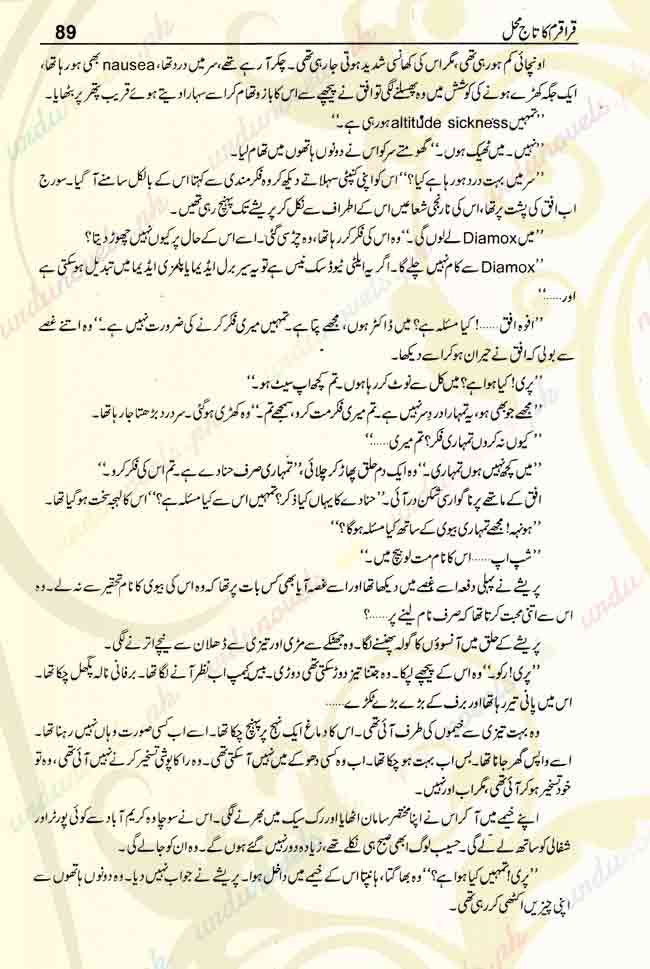 قراقرم کا تاج محل 89
اونچائی کم ہو رہی تھی، مگر اس کی کھانسی شدید ہوتی جا رہی تھی۔ چکر آ رہے تھے، سر میں درد تھا، nausea بھی ہو رہا تھا،
ایک جگہ کھڑے ہونے کی کوشش میں وہ پھسلنے لگی تو افق نے پیچھے سے اس کا بازو تھام کر اسے سہارا دیتے ہوئے قریب پتھر پر بٹھایا۔
’’تمہیں altitude sickness ہو رہی ہے۔‘‘
’’نہیں۔ میں ٹھیک ہوں۔‘‘ گھومتے سر کو اس نے دونوں ہاتھوں میں تھام لیا۔
’’سر میں بہت درد ہو رہا ہے کیا؟‘‘ اس کو اپنی کنپٹی سہلاتے دیکھ کر وہ فکرمندی سے کہتا اس کے بالکل سامنے آ گیا۔ سورج
اب افق کی پشت پر تھا، اس کی نارنجی شعاعیں اس کے اطراف سے نکل کر پریشے تک پہنچ رہی تھیں۔
’’میں Diamox لے لوں گی۔‘‘ وہ اس کی فکر کر رہا تھا، وہ چڑ سی گئی۔ اسے اس کے حال پر کیوں نہیں چھوڑ دیتا؟
’’Diamox سے کام نہیں چلے گا۔ اگر یہ ایلٹی ٹیوڈ سک نیس ہے تو یہ سیربرل ایڈیما یا پلمزی ایڈیما میں تبدیل ہو سکتی ہے
اور......‘‘
’’افوہ افق......! کیا مسئلہ ہے؟ میں ڈاکٹر ہوں، مجھے پتا ہے۔ تمہیں میری فکر کرنے کی ضرورت نہیں ہے۔‘‘ وہ اتنے غصے
سے بولی کہ افق نے حیران ہو کر اسے دیکھا۔
’’پری! کیا ہوا ہے؟ میں کل سے نوٹ کر رہا ہوں۔ تم کچھ اپ سیٹ ہو۔‘‘
’’مجھے جو بھی ہو، یہ تمہارا دردِ سر نہیں ہے۔ تم میری فکر مت کرو، سمجھے تم۔‘‘ وہ کھڑی ہو گئی۔ سر درد بڑھتا جا رہا تھا۔
’’کیوں نہ کروں تمہاری فکر؟ تم میری......‘‘
’’میں کچھ نہیں ہوں تمہاری۔‘‘ وہ ایک دم حلق پھاڑ کر چلائی، ’’تمہاری صرف حنادے ہے۔ تم اس کی فکر کرو۔‘‘
افق کے ماتھے پر ناگواری شکن در آئی۔ ’’حنادے کا یہاں کیا ذکر؟ تمہیں اس سے کیا مسئلہ ہے؟‘‘ اس کا لہجہ سخت ہو گیا تھا۔
’’ہونہہ! مجھے تمہاری بیوی کے ساتھ کیا مسئلہ ہوگا؟‘‘
’’شپ اپ...... اس کا نام مت لو بیچ میں۔‘‘
پریشے نے پہلی دفعہ اسے غصے میں دیکھا تھا اور اسے غصہ آیا بھی کس بات پر تھا کہ وہ اس کی بیوی کا نام تحقیر سے نہ لے۔ وہ
اس سے اتنی محبت کرتا تھا کہ صرف نام لینے پر......؟
پریشے کے حلق میں آنسوؤں کا گولہ پھنسنے لگا۔ وہ جھٹکے سے مڑی اور تیزی سے ڈھلان سے نیچے اترنے لگی۔
’’پری! رکو۔‘‘ وہ اس کے پیچھے لپکا۔ وہ جتنا تیز دوڑ سکتی تھی دوڑی۔ بیس کیمپ اب نظر آنے لگا تھا۔ برفانی نالہ پگھل چکا تھا۔
اس میں پانی تیر رہا تھا اور برف کے بڑے بڑے ٹکڑے......
وہ بہت تیزی سے خیموں کی طرف آئی تھی۔ اس کا دماغ ایک نہج پر پہنچ چکا تھا۔ اسے اب کسی صورت وہاں نہیں رہنا تھا۔
اسے واپس گھر جانا تھا۔ بس اب بہت ہو چکا تھا۔ اب وہ کسی دھوکے میں نہیں آ سکتی تھی۔ وہ راکاپوشی تسخیر کرنے نہیں آئی تھی، وہ تو
خود تسخیر ہو کر آئی تھی، مگر اب اور نہیں۔
اپنے خیمے میں آ کر اس نے اپنا مختصر سامان اٹھایا اور رک سیک میں بھرنے لگی۔ اس نے سوچا وہ کریم آباد سے کوئی پورٹر اور
شفالی کو ساتھ لے لے گی۔ حسیب لوگ ابھی صبح ہی نکلے تھے، زیادہ دور نہیں گئے ہوں گے۔ وہ ان کو جا لے گی۔
’’پری! تمہیں کیا ہوا ہے؟‘‘ وہ بھاگتا، ہانپتا اس کے خیمے میں داخل ہوا۔ پریشے نے جواب نہیں دیا۔ وہ دونوں ہاتھوں سے
اپنی چیزیں اکٹھی کر رہی تھی۔